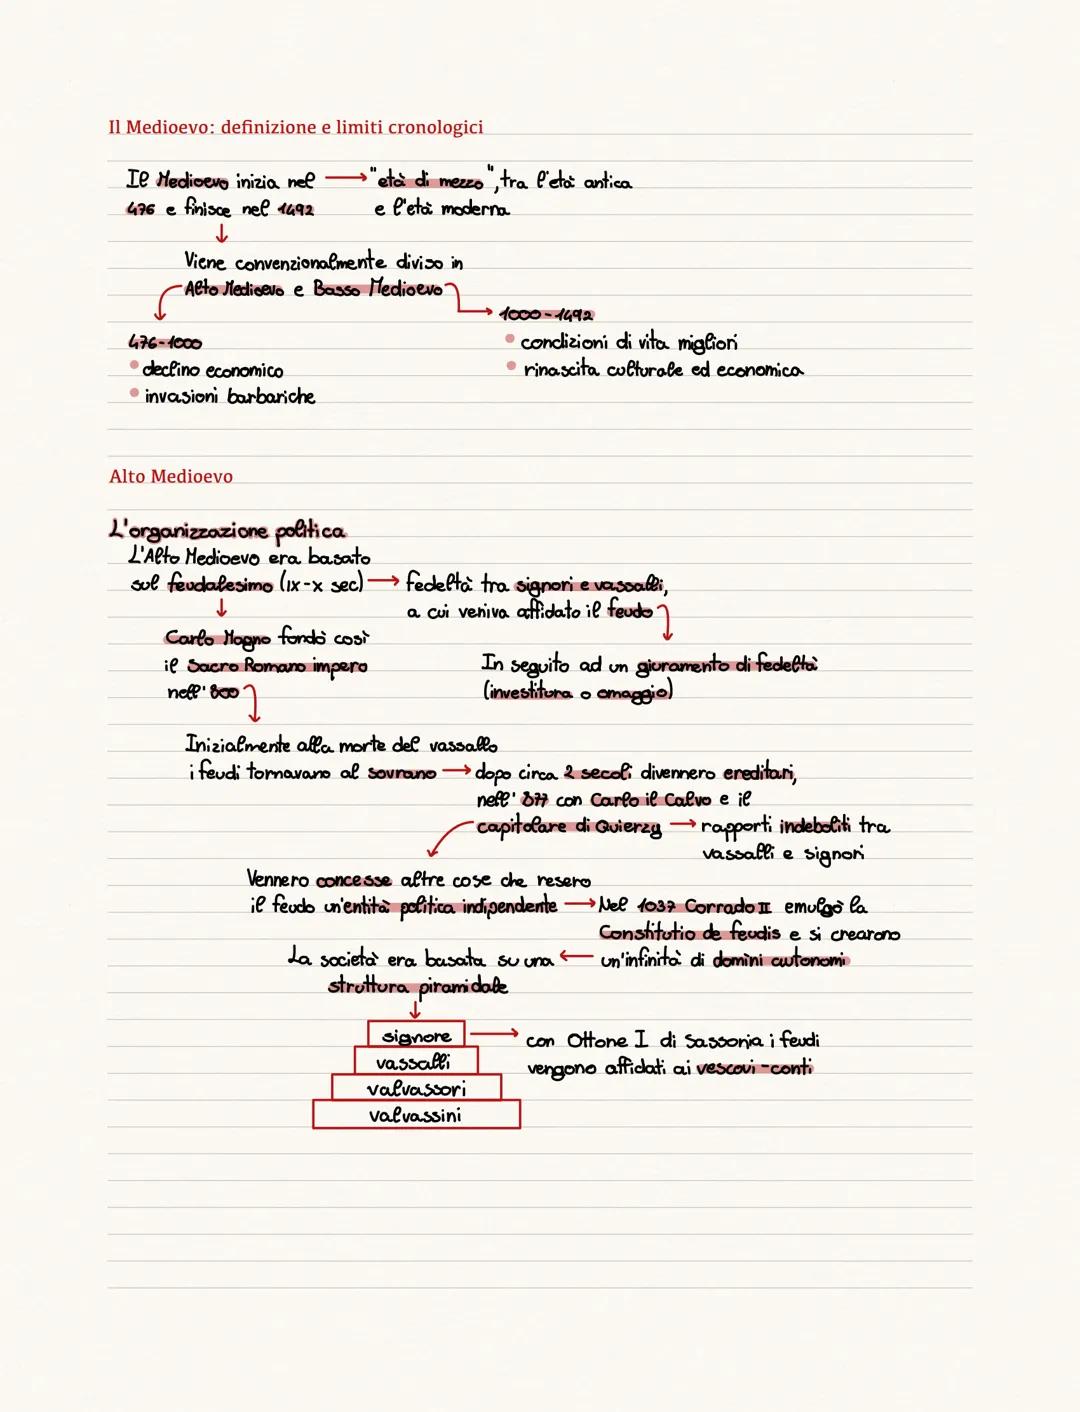 Il Medioevo: definizione e limiti cronologici
Il Medioevo inizia nel → "età di mezzo", tra l'età antica
476 e finisce nel 1492 e l'età moderna
Viene convenzionalmente diviso in
Alto Medioevo e Basso Medioevo
1000-1492
476-1000
• condizioni di vita migliori
• declino economico
• rinascita culturale ed economica
• invasioni barbariche
Alto Medioevo
L'organizzazione politica
L'Alto Medioevo era basato
sul feudalesimo (IX-X sec) → fedeltà tra signori e vassalli,
a cui veniva affidato il feudo
Carlo Magno fondò così
il Sacro Romano impero
nell'800
In seguito ad un giuramento di fedeltà
(investitura o omaggio)
Inizialmente alla morte del vassallo
i feudi tornavano al sovrano → dopo circa 2 secoli divennero ereditari,
nell'877 con Carlo il Calvo e il
capitolare di Quierzy → rapporti indeboliti tra
vassalli e signori
Vennero concesse altre cose che resero
il feudo un'entità politica indipendente → Nel 1037 Corrado II emulgò la
Constitutio de feudis e si crearono
un'infinità di domini autonomi
La società era basata su una
struttura piramidale
signore → con Ottone I di Sassonia i feudi
vengono affidati ai vescovi-conti
vassalli
valvassori
valvassini